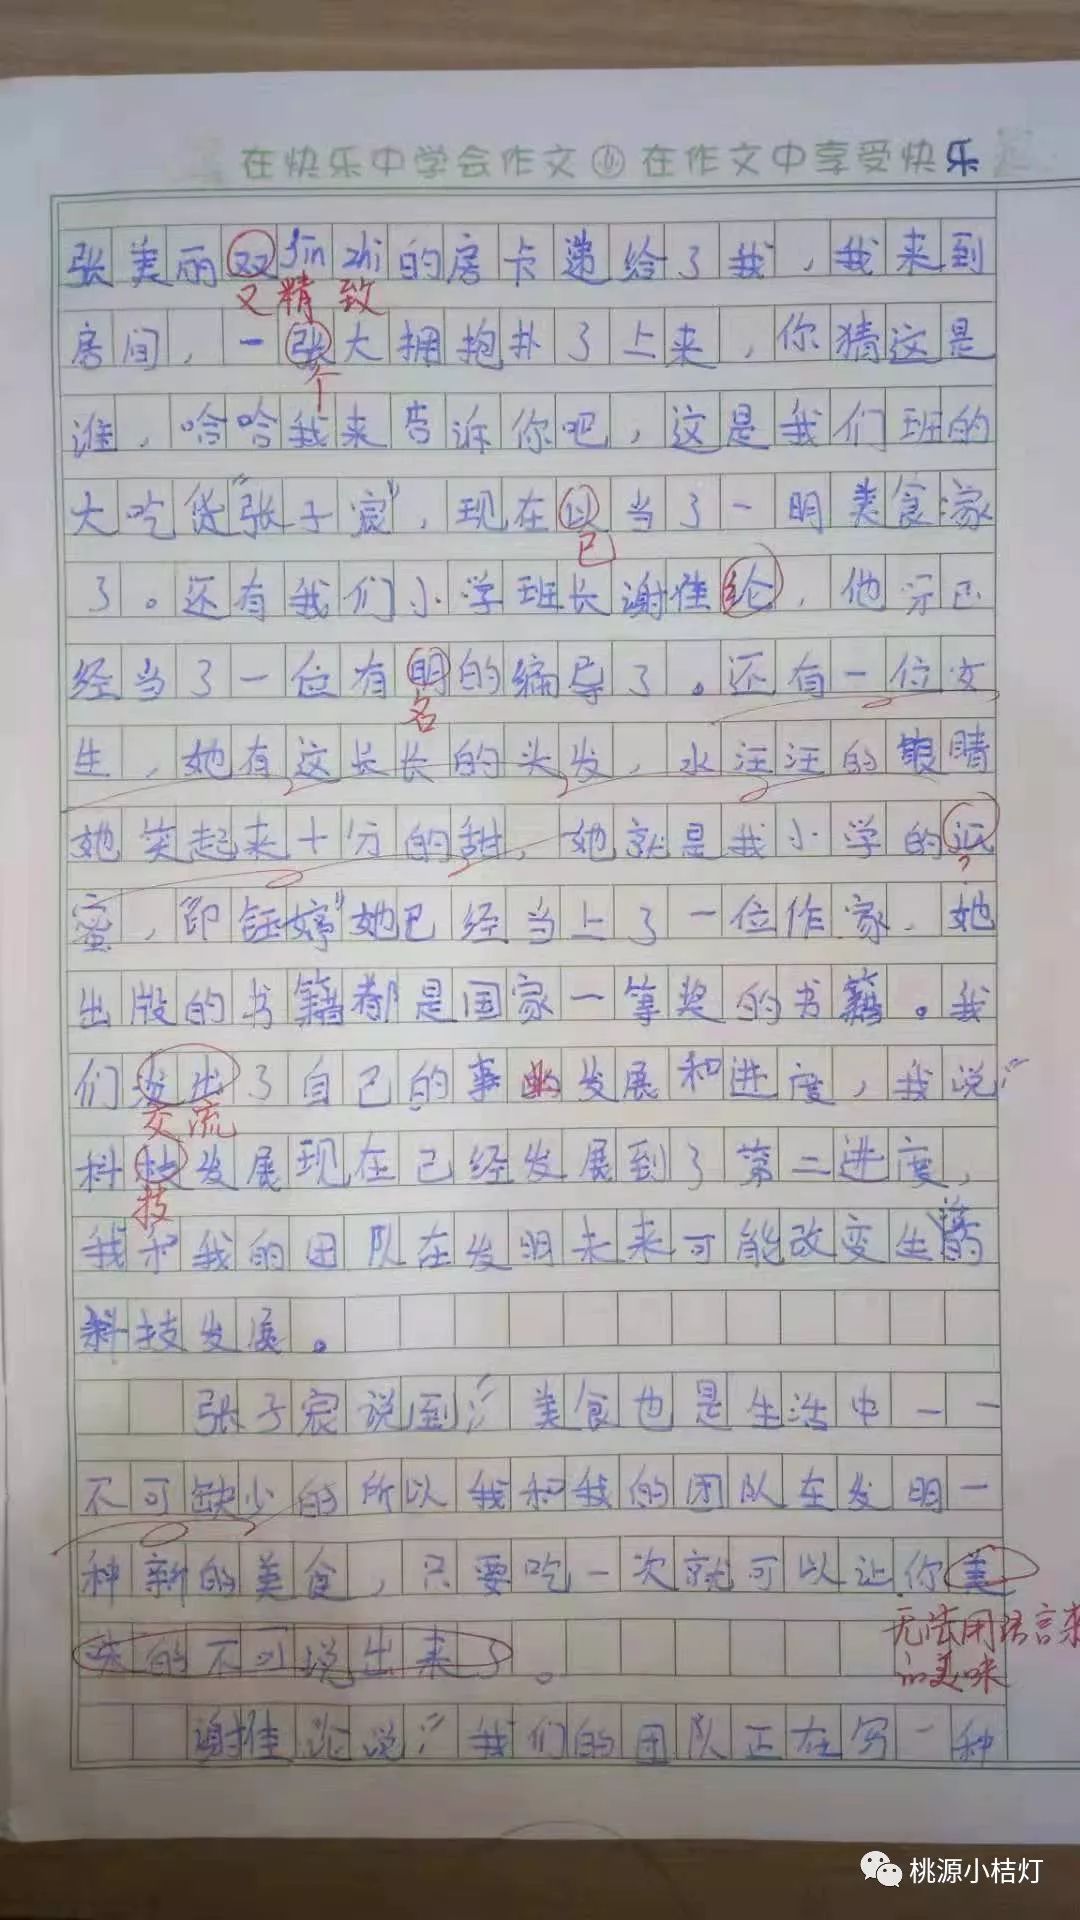 在快乐中学会作文 在作文中享受快乐
张美丽双jin zhi的房卡递给了我，我来到
又精致
房间，一张大拥抱扑了上来，你猜这是
个
谁，哈哈我来告诉你吧，这是我们班的
大吃货"张子宸"，现在以当了一明美食家
已
了。还有我们小学班长谢惟纶，他已
经当了一位有明的编导了。还有一位女
名
生，她有这长长的头发，水汪汪的眼睛
她笑起来十分的甜，她就是我小学的
?
蜜，钰婷"她已经当上了一位作家，她
出版的书籍都是国家一等奖的书籍。我
们了自己的事业发展和进度，我说："
交流
科技发展现在已经发展到了第二进度，
技
我和我的团队在发明未来可能改变生活的
科技发展。
张子宸说到："美食也是生活中一一
不可缺少的所以我和我的团队在发明一
种新的美食，只要吃一次就可以让你美
无法用语言来
味的不可说出来了。
的美味
谢惟论说："我们的团队正在写一种
桃源小桔灯